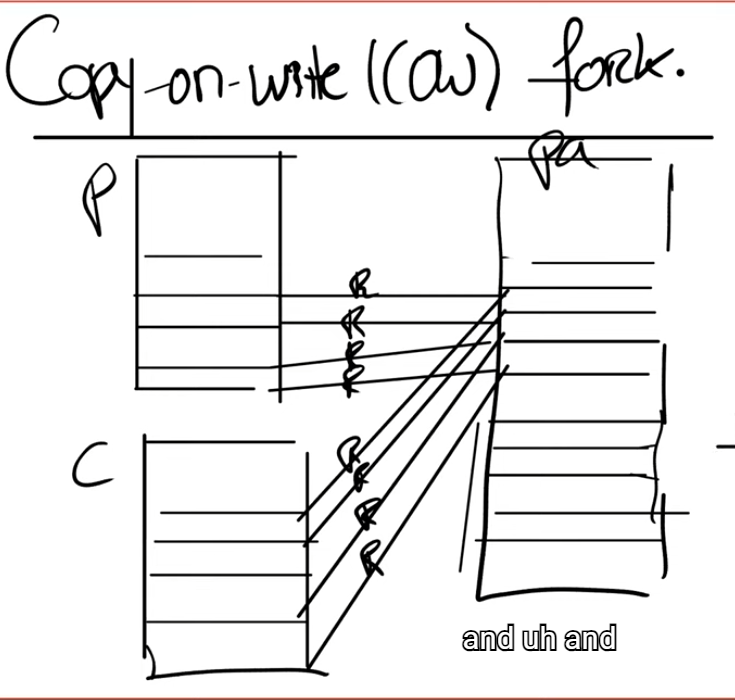 Copy-on-write (COW) fork.
P
pa
R
R
R
R
C
R
R
R
R
and uh and